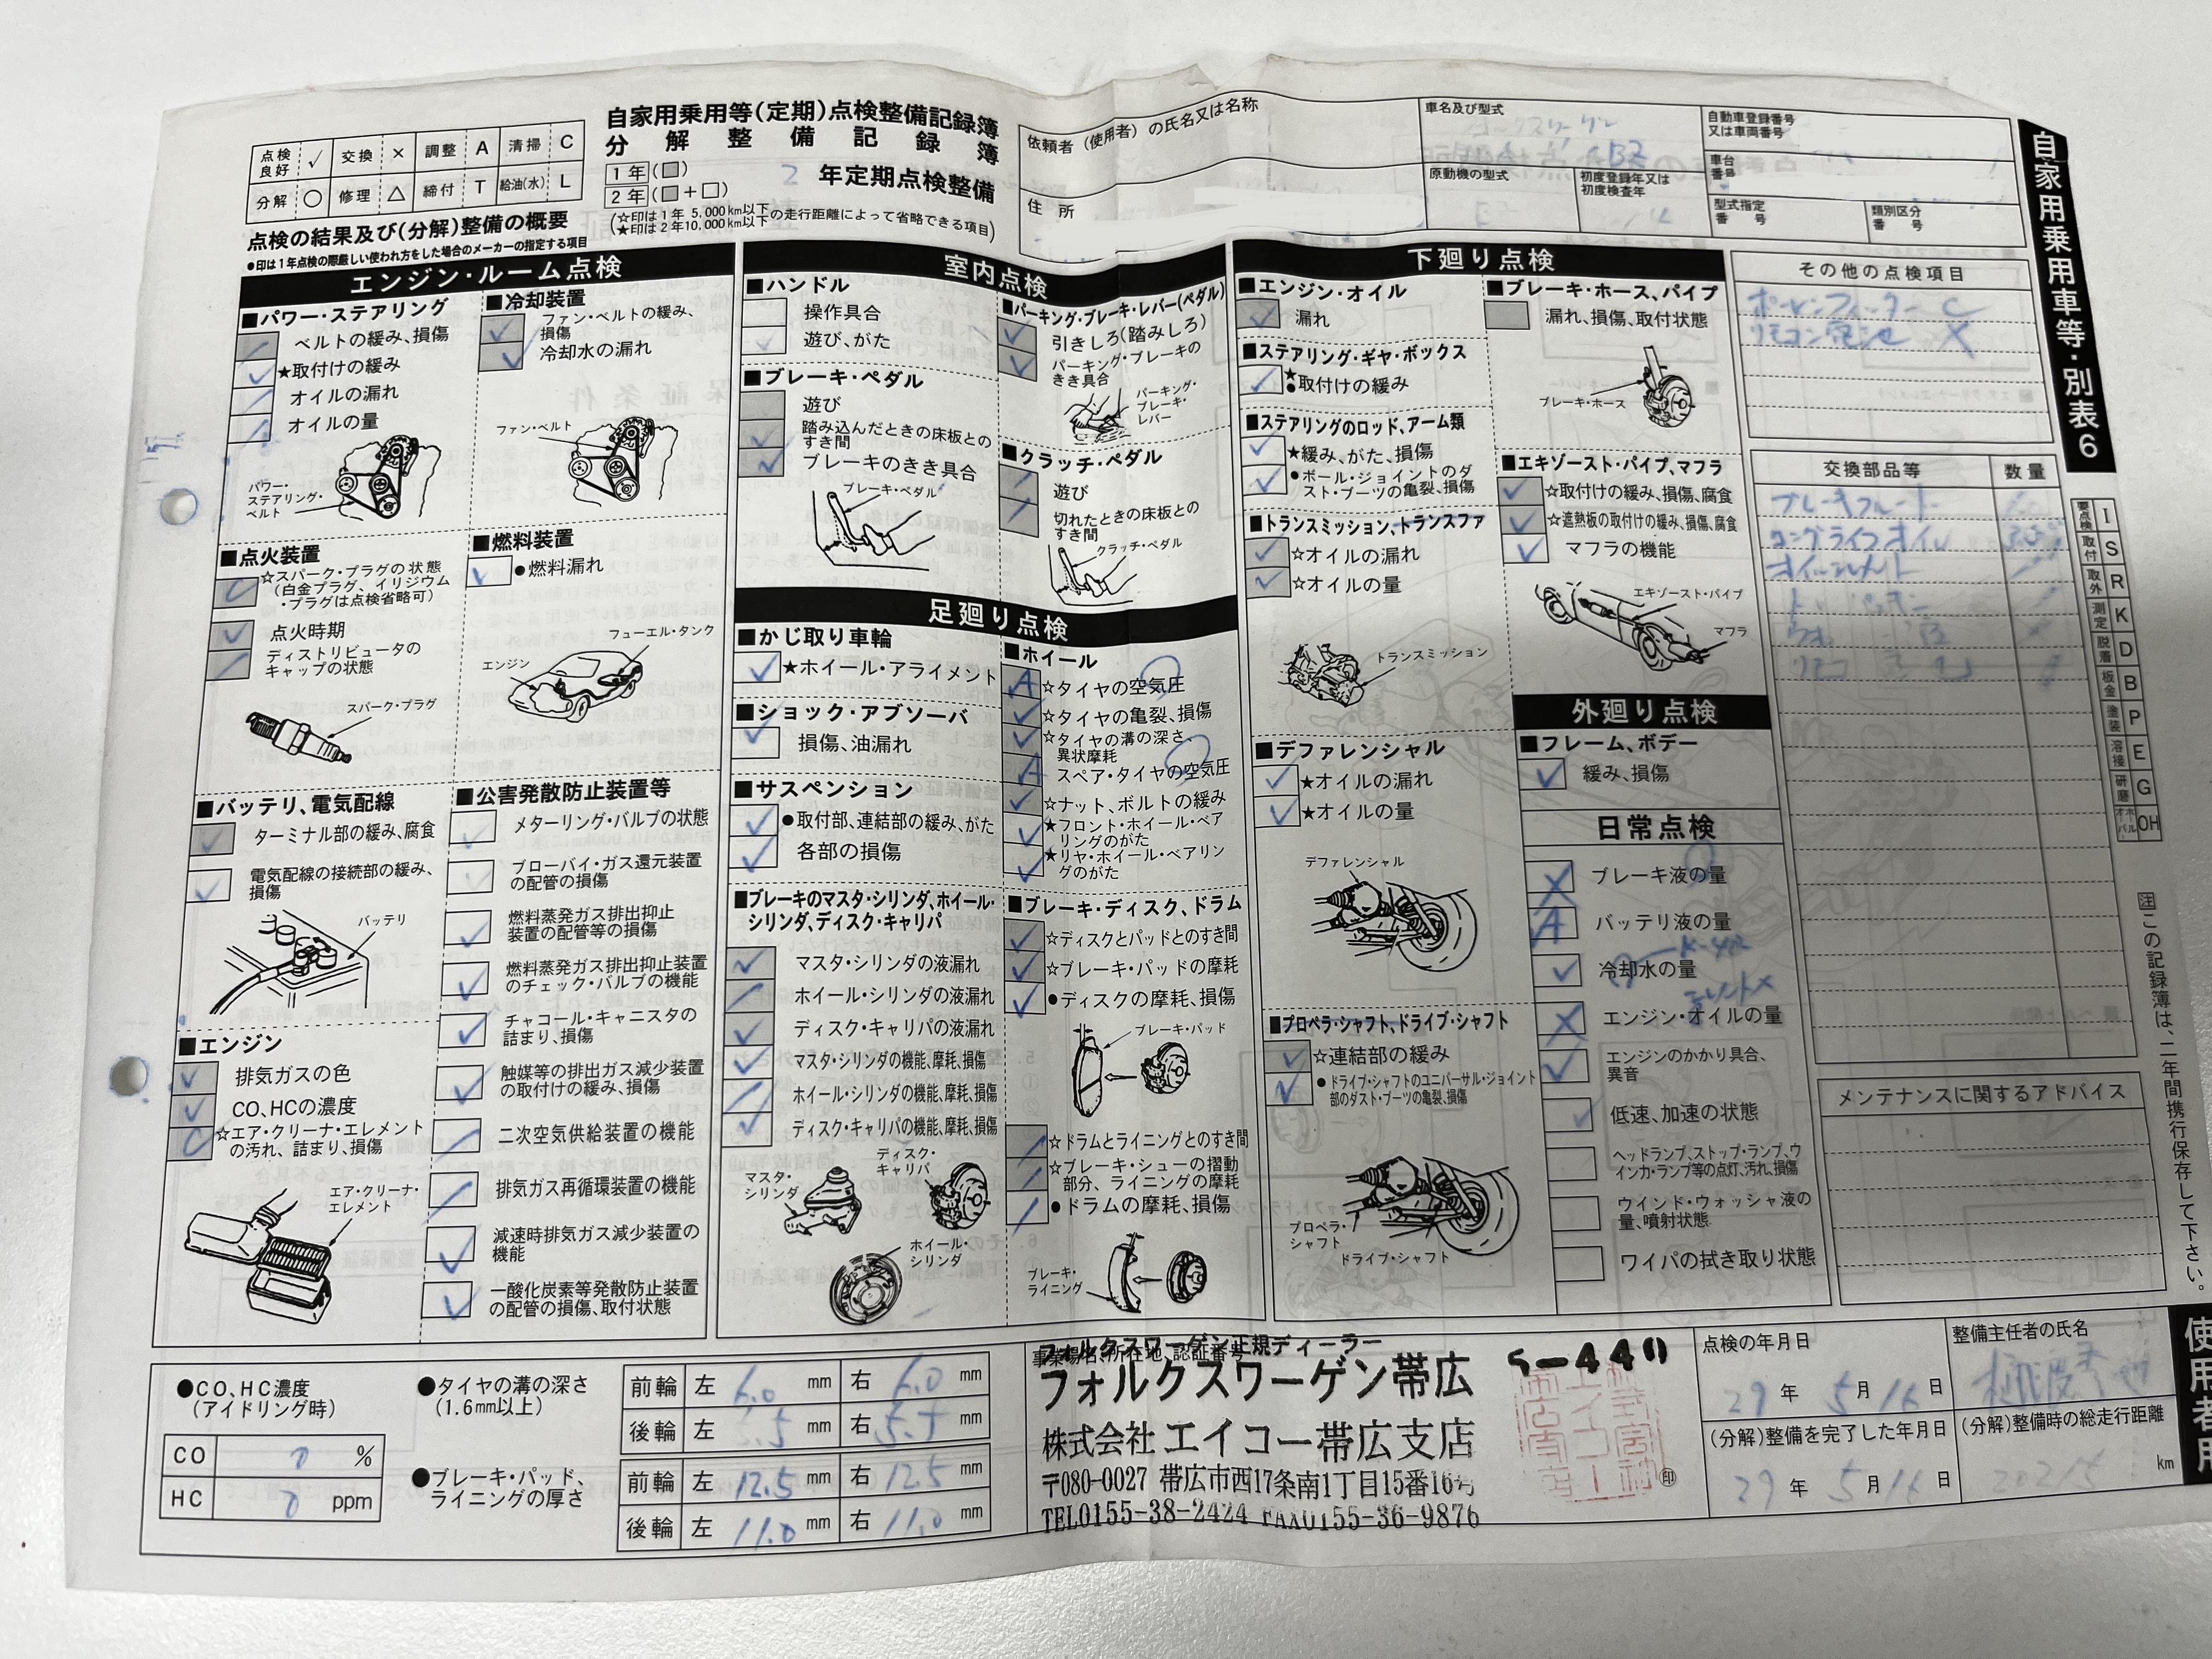 自家用乗用等(定期)点検整備記録簿
分解整備記録簿
点検良好 ✓ 交換 × 調整 A 清掃 C
分解 ○ 修理 △ 締付 T 給油(水) L
1年(□)
2年(□+□)
2 年定期点検整備
(☆印は1年 5,000km以下
★印は2年10,000km以下の走行距離によって省略できる項目)
点検の結果及び(分解)整備の概要
●印は1年点検の際厳しい使われ方をした場合のメーカーの指定する項目
依頼者(使用者)の氏名又は名称
住所
車名及び型式
原動機の型式
初度登録年又は初度検査年
自動車登録番号又は車両番号
車台番号
型式指定番号
類別区分番号
自家用乗用車等・別表6
エンジン・ルーム点検
■パワー・ステアリング
ベルトの緩み、損傷
★取付けの緩み
オイルの漏れ
オイルの量
パワー・ステアリング・ベルト
■点火装置
☆スパーク・プラグの状態
(白金プラグ、イリジウム
・プラグは点検省略可)
点火時期
ディストリビュータのキャップの状態
スパーク・プラグ
■バッテリ、電気配線
ターミナル部の緩み、腐食
電気配線の接続部の緩み、損傷
バッテリ
■エンジン
排気ガスの色
CO、HCの濃度
☆エア・クリーナ・エレメント
の汚れ、詰まり、損傷
エア・クリーナ・エレメント
■冷却装置
ファン・ベルトの緩み、損傷
冷却水の漏れ
ファン・ベルト
■燃料装置
●燃料漏れ
フューエル・タンク
エンジン
■公害発散防止装置等
メターリング・バルブの状態
ブローバイ・ガス還元装置の配管の損傷
燃料蒸発ガス排出抑止装置の配管等の損傷
燃料蒸発ガス排出抑止装置のチェック・バルブの機能
チャコール・キャニスタの詰まり、損傷
触媒等の排出ガス減少装置の取付けの緩み、損傷
二次空気供給装置の機能
排気ガス再循環装置の機能
減速時排気ガス減少装置の機能
一酸化炭素等発散防止装置の配管の損傷、取付状態
室内点検
■ハンドル
操作具合
遊び、がた
■ブレーキ・ペダル
遊び
踏み込んだときの床板とのすき間
ブレーキのきき具合
ブレーキ・ペダル
■パーキング・ブレーキ・レバー(ペダル)
引きしろ(踏みしろ)
パーキング・ブレーキのきき具合
パーキング・ブレーキ・レバー
■クラッチ・ペダル
遊び
切れたときの床板とのすき間
クラッチ・ペダル
足廻り点検
■かじ取り車輪
★ホイール・アライメント
■ショック・アブソーバ
損傷、油漏れ
■サスペンション
●取付部、連結部の緩み、がた
各部の損傷
■ブレーキのマスタ・シリンダ、ホイール・シリンダ、ディスク・キャリパ
マスタ・シリンダの液漏れ
ホイール・シリンダの液漏れ
ディスク・キャリパの液漏れ
マスタ・シリンダの機能、摩耗、損傷
ホイール・シリンダの機能、摩耗、損傷
ディスク・キャリパの機能、摩耗、損傷
マスタ・シリンダ
ディスク・キャリパ
ホイール・シリンダ
■ホイール
A ☆タイヤの空気圧
☆タイヤの亀裂、損傷
☆タイヤの溝の深さ、異状摩耗
A スペア・タイヤの空気圧
☆ナット、ボルトの緩み
★フロント・ホイール・ベアリングのがた
★リヤ・ホイール・ベアリングのがた
■ブレーキ・ディスク、ドラム
☆ディスクとパッドとのすき間
☆ブレーキ・パッドの摩耗
●ディスクの摩耗、損傷
ブレーキ・パッド
☆ドラムとライニングとのすき間
☆ブレーキ・シューの摺動部分、ライニングの摩耗
●ドラムの摩耗、損傷
ブレーキ・ライニング
下廻り点検
■エンジン・オイル
漏れ
■ステアリング・ギヤ・ボックス
★●取付けの緩み
■ステアリングのロッド、アーム類
★緩み、がた、損傷
●ボール・ジョイントのダスト・ブーツの亀裂、損傷
■トランスミッション、トランスファ
☆オイルの漏れ
☆オイルの量
トランスミッション
■デファレンシャル
★オイルの漏れ
★オイルの量
デファレンシャル
■プロペラ・シャフト、ドライブ・シャフト
☆連結部の緩み
●ドライブ・シャフトのユニバーサル・ジョイント部のダスト・ブーツの亀裂、損傷
プロペラ・シャフト
ドライブ・シャフト
■ブレーキ・ホース、パイプ
漏れ、損傷、取付状態
ブレーキ・ホース
■エキゾースト・パイプ、マフラ
☆取付けの緩み、損傷、腐食
☆遮熱板の取付けの緩み、損傷、腐食
マフラの機能
エキゾースト・パイプ
マフラ
外廻り点検
■フレーム、ボデー
緩み、損傷
日常点検
× ブレーキ液の量
A バッテリ液の量
冷却水の量
× エンジン・オイルの量
エンジンのかかり具合、異音
低速、加速の状態
ヘッドランプ、ストップ・ランプ、ウインカ・ランプ等の点灯、汚れ、損傷
ウインド・ウォッシャ液の量、噴射状態
ワイパの拭き取り状態
その他の点検項目
リモコン電池 ×
交換部品等 数量
メンテナンスに関するアドバイス
要点検 I
取付 S
取外 R
測定 K
脱着 D
板金 B
塗装 P
溶接 E
研磨 G
オーバーホール OH
注この記録簿は、二年間携行保存して下さい。
使用者用
●CO、HC濃度
(アイドリング時)
CO 0 %
HC 0 ppm
●タイヤの溝の深さ
(1.6mm以上)
前輪 左 6.0 mm 右 6.0 mm
後輪 左 5.5 mm 右 5.5 mm
●ブレーキ・パッド、ライニングの厚さ
前輪 左 12.5 mm 右 12.5 mm
後輪 左 11.0 mm 右 11.0 mm
事業場名、所在地、認証番号
フォルクスワーゲン正規ディーラー
フォルクスワーゲン帯広
株式会社エイコー帯広支店
〒080-0027 帯広市西17条南1丁目15番16号
TEL0155-38-2424 FAX0155-36-9876
5-440
印
点検の年月日
29年 5月 16日
(分解)整備を完了した年月日
29年 5月 16日
整備主任者の氏名
(分解)整備時の総走行距離
km